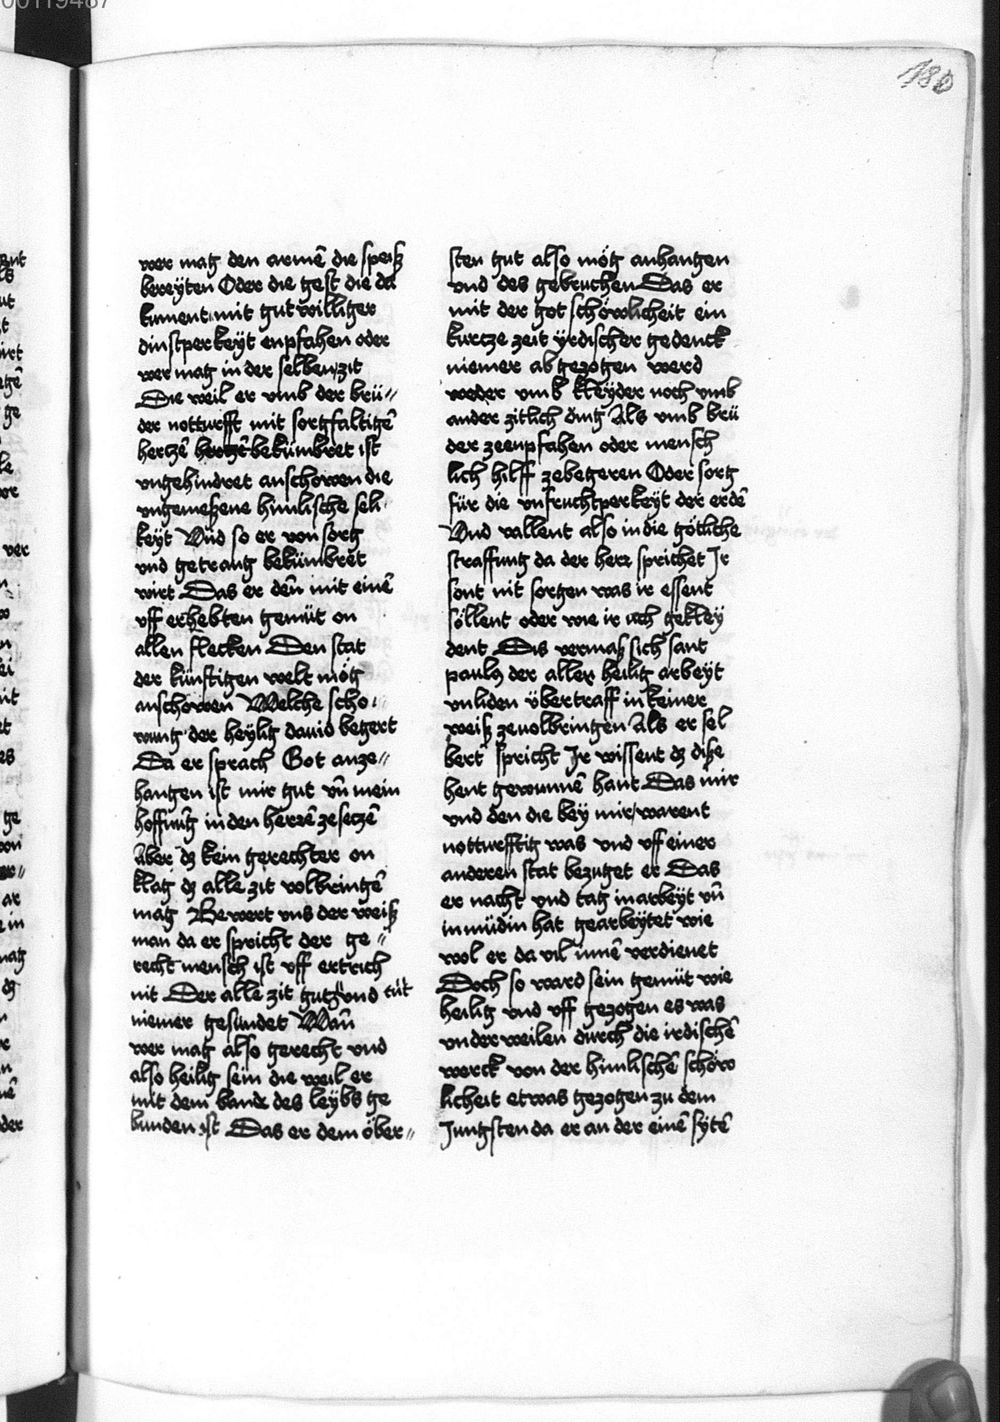 180
wer mag den armē die speiß
bereÿten Oder die gest die da
kument mit gutwilliger
dinstperkeÿt enpfahen oder
wer mag in der selben zit
Die weil er vmb der brü〃
der notturfft mit sorgfaltigē
hertzē hertzē bekümbret ist
vngehindret anschowen die
vngemeßene himlische seli
keÿt Vnd so er von sorg
vnd getrang bekümbret
wirt Das er dēn mit einē
vff erhebten gemüt on
allen flecken Den stat
der künftigen welt mög
anschowen Welche scho
wung der heÿlig dauid begert
Da er sprach Got anze〃
hangen ist mir gut vn̄ mein
hoffnūg in den herrē zesetzē
Aber dz kein gerechter on
klag dz alle zit volbringē
mag Bewert vns der weiß
man da er spricht der ge〃
recht mensch ist vff ertrich
nit Der alle zit gutz vnd tüt
niemer gesündet Wan̄
wer mag also gerecht vnd
also heilig sein die weil er
mit dem bande des leÿbs ge
bunden ist Das er dem öber〃
sten gut also mög anhangen
vnd des gebruchen Das er
mit der got schöwlicheit ein
kurcze zeit ÿrdischer gedenck
niemer ab gezogen werd
weder vmb kleÿder noch vmb
ander zitlich ding Als vmb brü
der zeenpfahen oder mensch
lich hilff zebegeren Oder sorg
für die vnfruchtperkeyt der erdē
Vnd vallent also in die götliche
straffung da der herr sprichet Ir
sont nit sorgen was ir essent
söllent oder wie ir üch gekleÿ
dent Dis vermaß sich sant
paulꝰ der aller heilig arbeÿt
vnliden übertraff in keiner
weiß zeuolbringen Als er sel
bert spricht Ir wissent dz diße
hent gewunnē hant Das mir
vnd den die beÿ mir warent
notturfftig was vnd vff einer
anderen stat bezuget er Das
er nacht vnd tag in arbeÿt vn̄
in müdin hat gearbeÿtet wie
wol er da vil innē verdienet
Doch so ward sein gemüt wie
heilig vnd vff gezogen es was
vnderweilen durch die irdischē
werck von der himlischē schöw
licheit etwas gezogen zu dem
Jungsten da er an der einē sÿtē